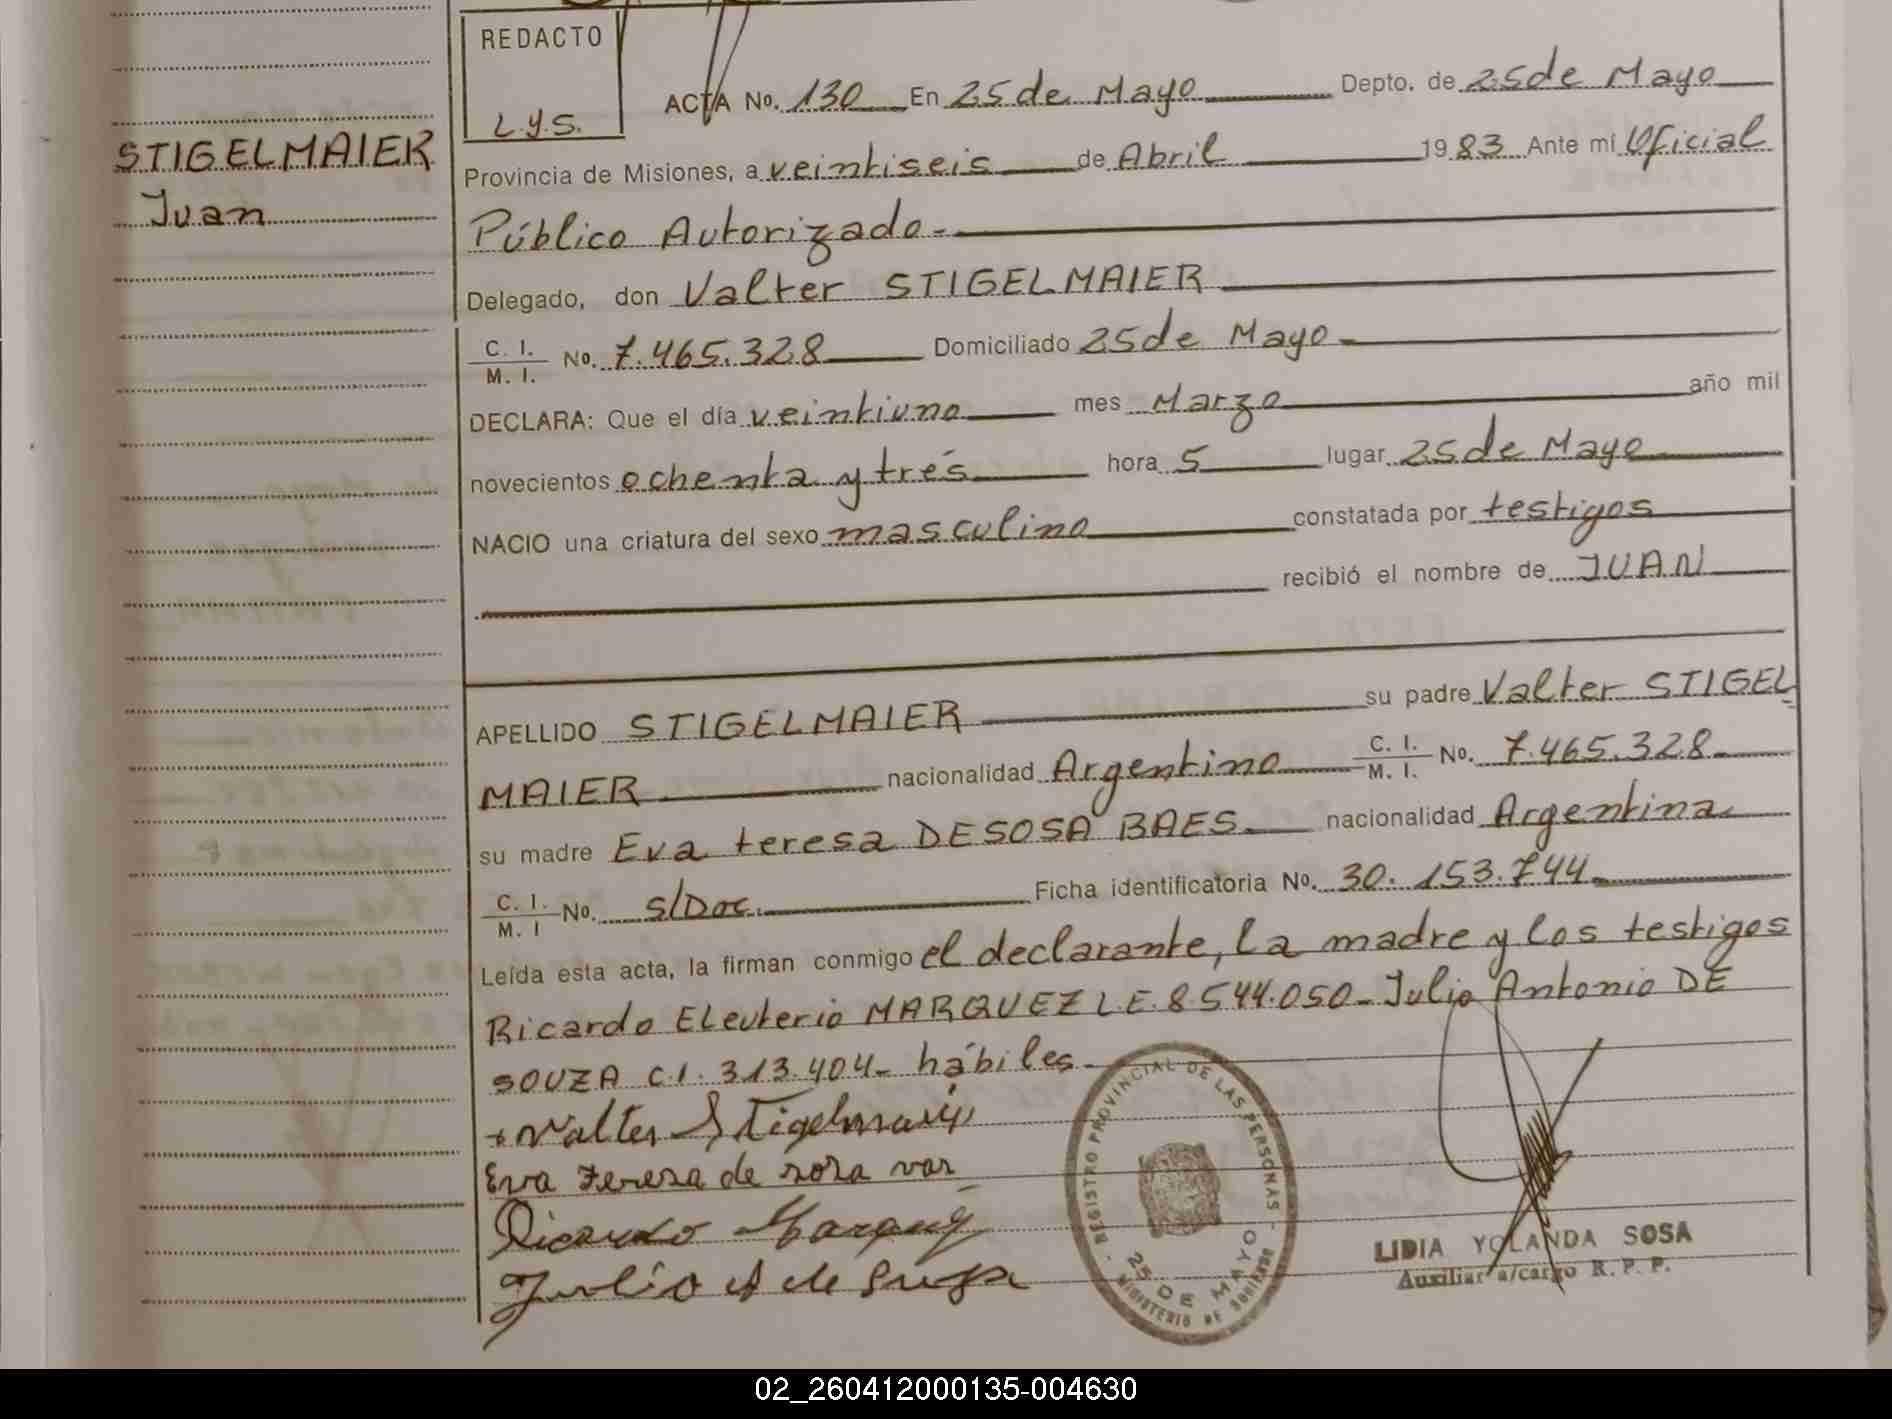 REDACTO
L.y.S.
STIGELMAIER
Juan
ACTA No. 130 En 25 de Mayo Depto. de 25 de Mayo
Provincia de Misiones, a veintiseis de Abril 1983 Ante mí Oficial
Público Autorizado.
Delegado, don Valter STIGELMAIER
C. I. / M. I. No. 7.465.328 Domiciliado 25 de Mayo
DECLARA: Que el día veintiuno mes Marzo año mil
novecientos ochenta y tres hora 5 lugar 25 de Mayo
NACIO una criatura del sexo masculino constatada por testigos
recibió el nombre de JUAN
APELLIDO STIGELMAIER su padre Valter STIGEL-
MAIER nacionalidad Argentino C. I. / M. I. No. 7.465.328
su madre Eva teresa DESOSA BAES nacionalidad Argentina
C. I. / M. I No. S/Doc. Ficha identificatoria No. 30.153.744
Leída esta acta, la firman conmigo el declarante, la madre y los testigos
Ricardo Eleuterio MARQUEZ L.E. 8.544.050 - Julio Antonio DE
SOUZA C.I. 313.404 - hábiles
Valter Stigelmaier
Eva Teresa de sosa vas
Ricardo Marquez
Julio A de Susa
REGISTRO PROVINCIAL DE LAS PERSONAS
25 DE MAYO
MINISTERIO DE GOBIERNO
LIDIA YOLANDA SOSA
Auxiliar a/cargo R. P. P.
02_260412000135-004630